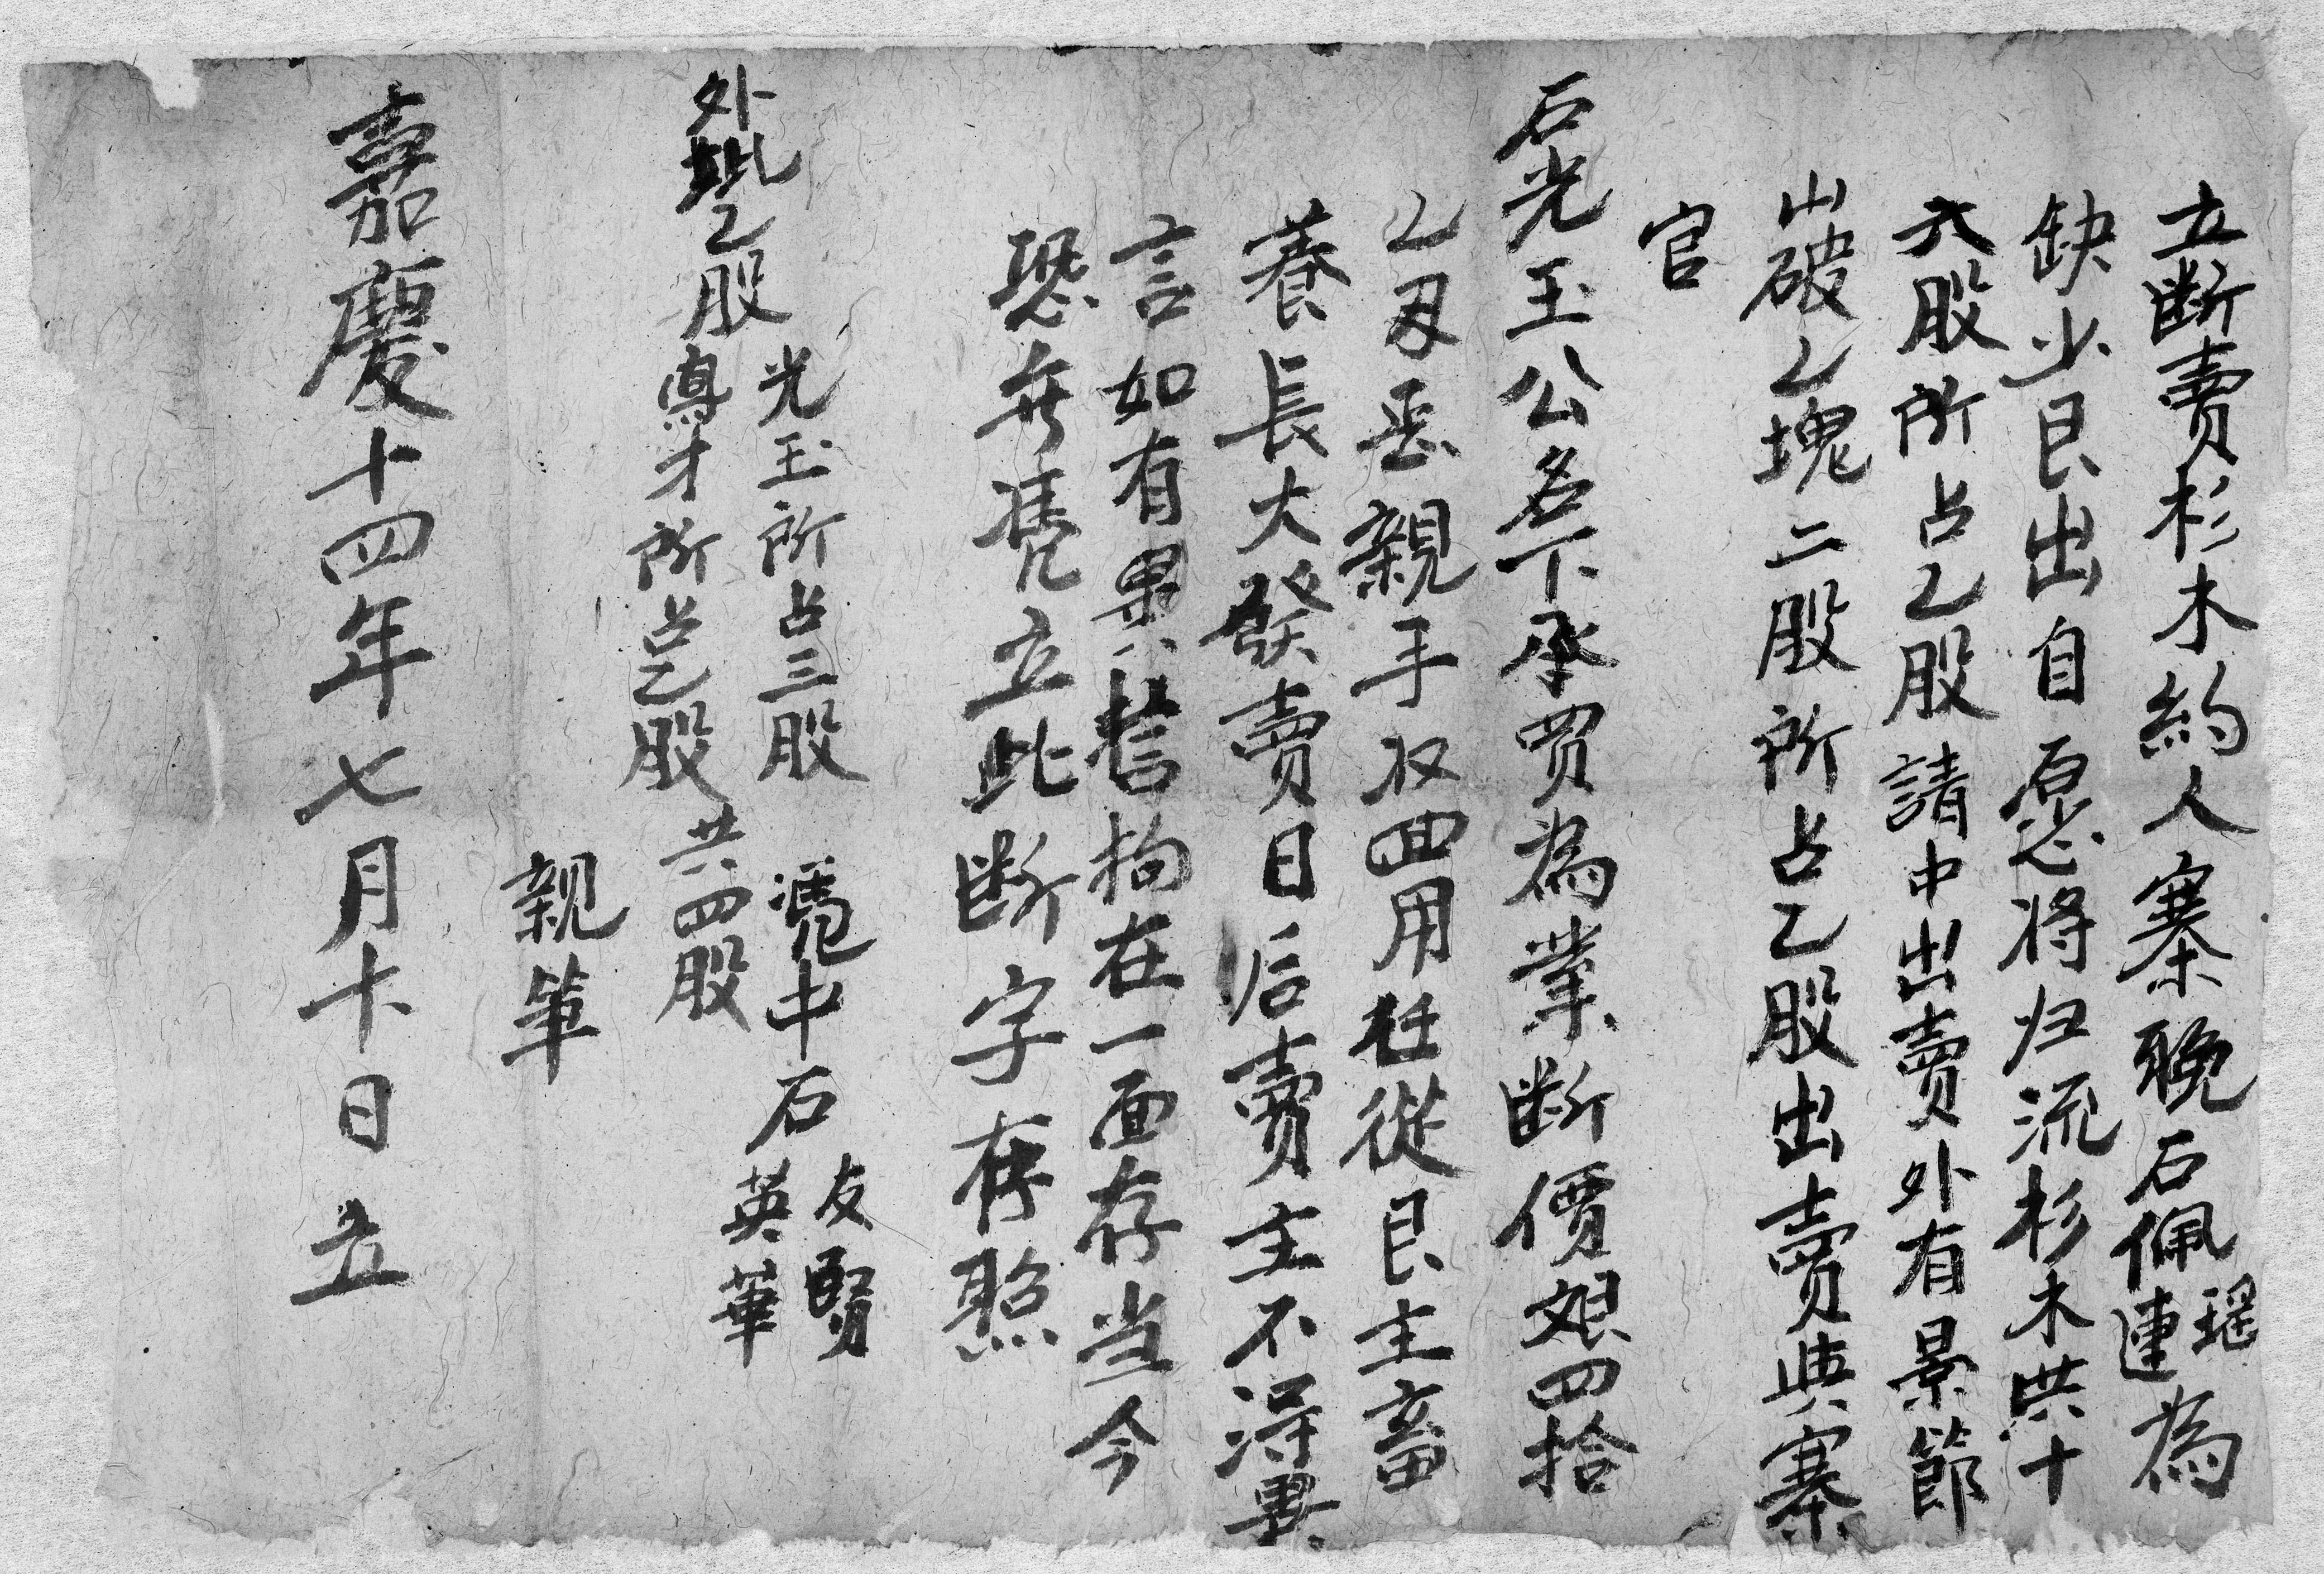 立断賣杉木約人寨晚石佩瑶連為
缺少艮出自愿将归流杉木共十
六股所占乙股請中出賣外有景節
山破乙塊二股所占乙股出賣與寨
官
石光玉公名下承買為業断價艮四拾
乙両親手収回用任從艮主畜
養長大發賣日后賣主不淂異
言如有異言拘在一面存当今
恐無凴立此断字存照
凴中石友賢英華
外批乙股光玉所占三股
𫝊才所占乙股共四股
親筆
嘉慶十四年七月十日立